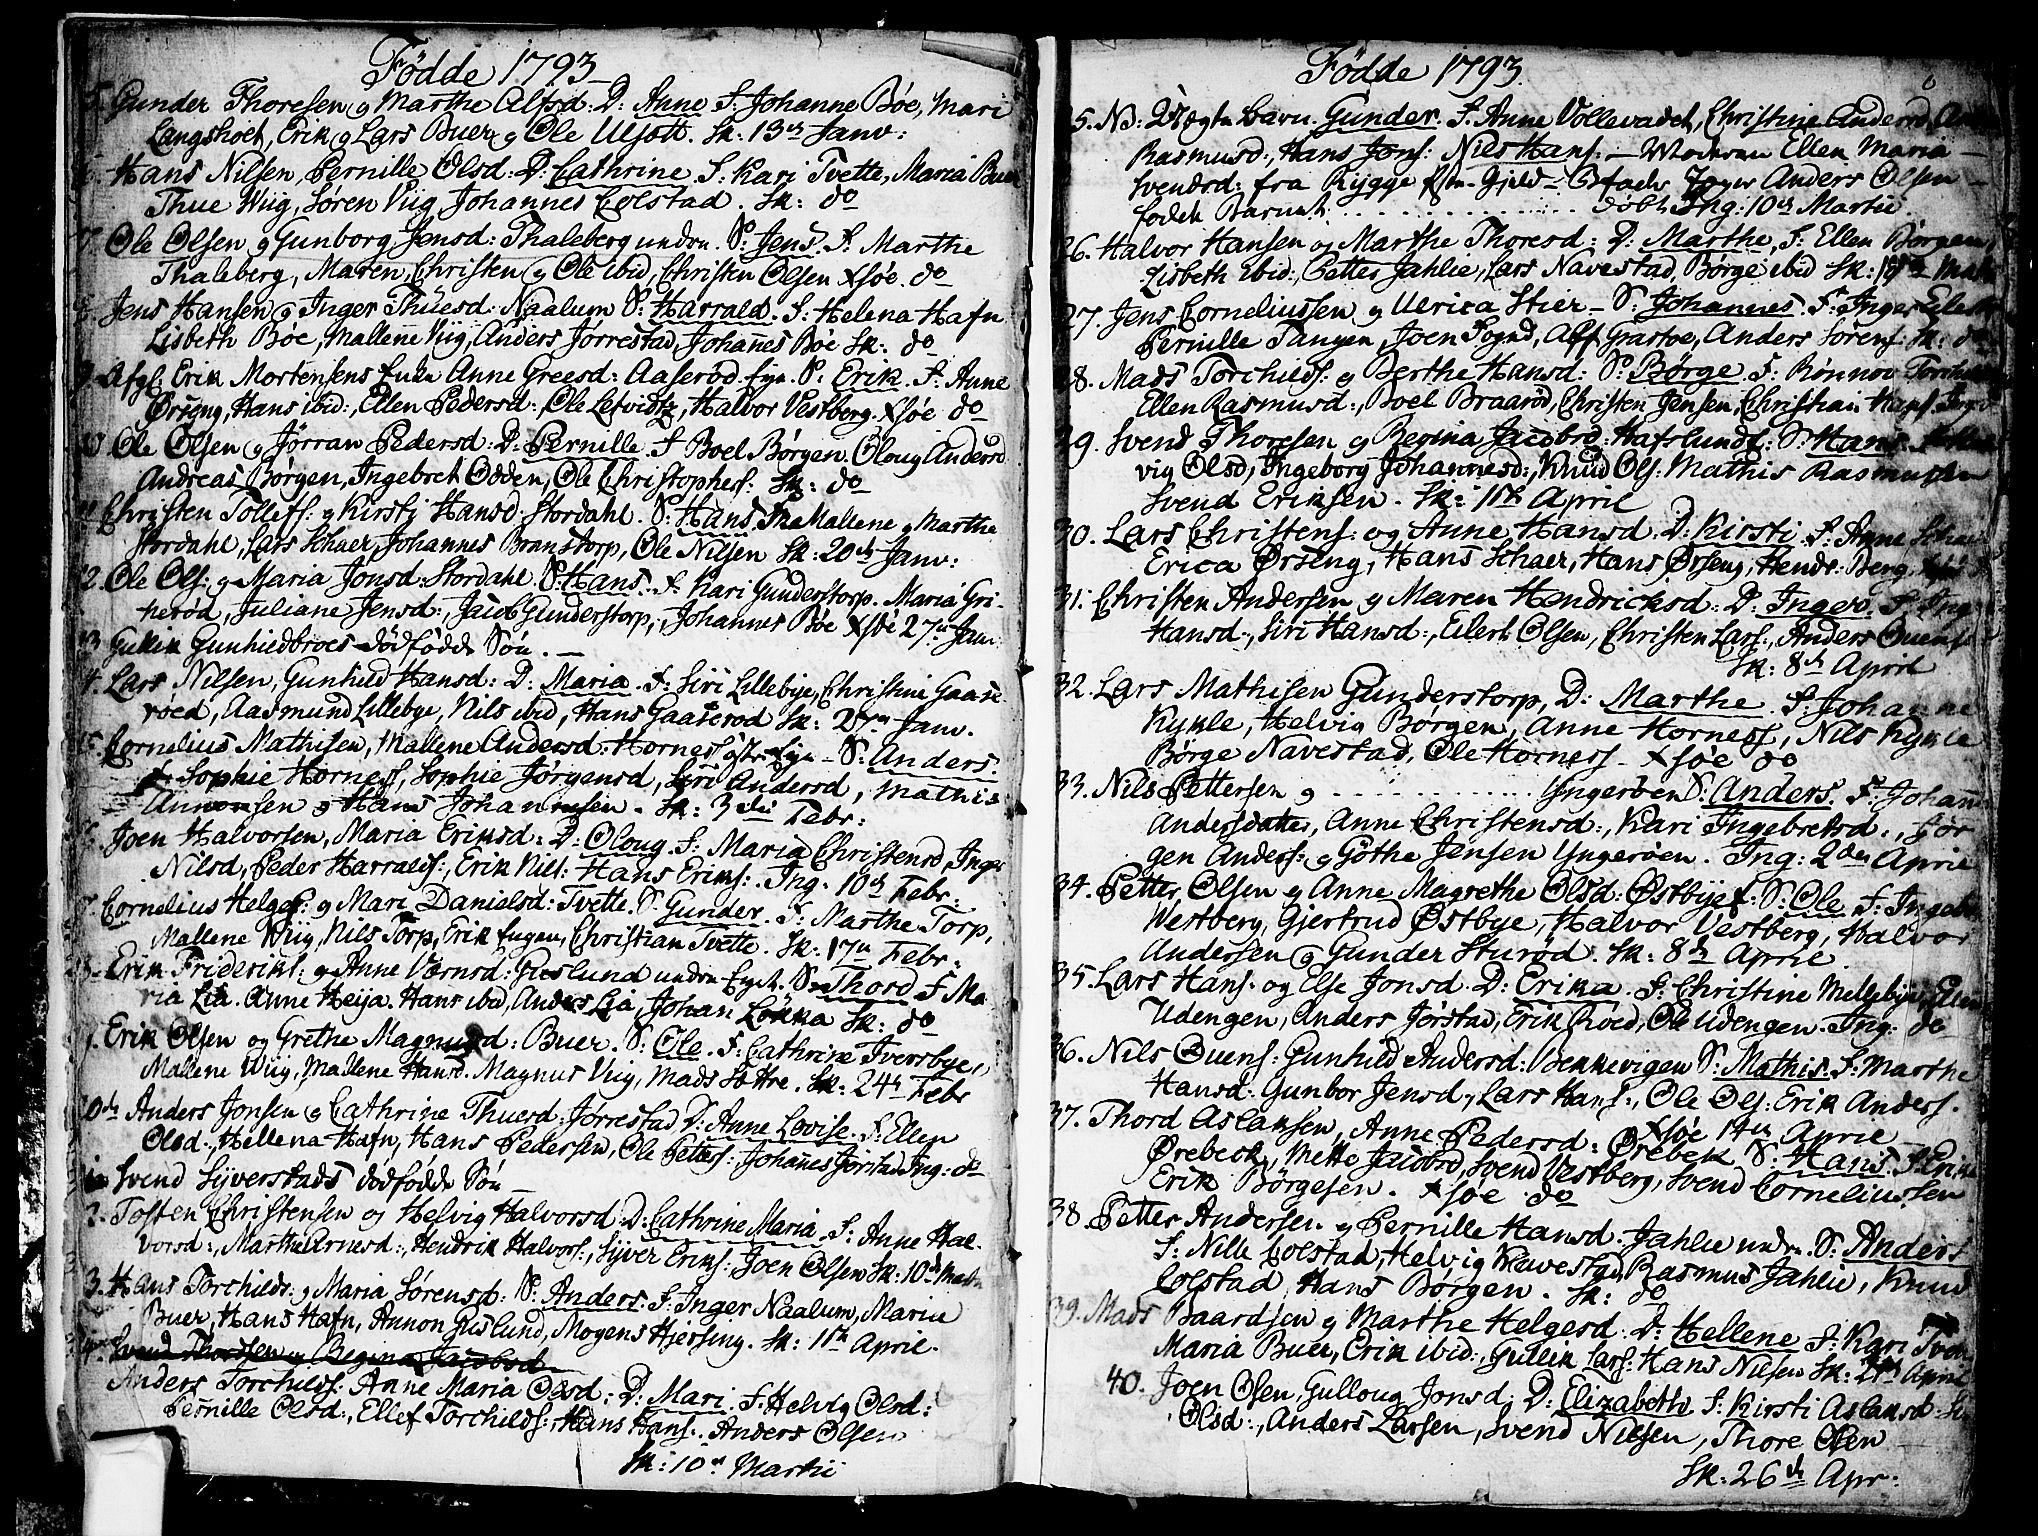 Födde 1793
5. Gunder Thoresen og Marthe Alfsd. D: Anne F: Johanne Böe, Mari
Langsholt, Erik og Lars Buer og Ole Sk: 13de Janv:
Hans Nilsen, Pernille Olsd. D: Cathrine. F: Kari Tvette, Maria Buer
Thue Wiig, Sören Viig, Johannes Colstad. Sk: do
7. Ole Olsen og Gunborg Jensd: Thaleberg undn. S: Jens. F: Marthe
Thaleberg, Maren, Christen og Ole ibid, Christen Olsen Xsöe. do
8. Jens Hansen og Inger Thuesd. Naalum S: Harrald. F: Helena Hafn
Lisbeth Böe, Mallene Viig, Anders Jörrestad, Johañes Böe Sk: do
9. Afgl. Erik Mortensens Enke Anne Greesd: Aaseröd S: Erik. F: Anne
Örseng, Hans ibid:, Ellen Pedersd:, Ole Halvor Vestberg. Xsöe do
10 Ole Olsen og Jörran Pedersd: D: Pernille. F Boel Börgen. Oloug Andersd
Andreas Börgen, Ingebret Odden, Ole Christophers: Sk: do
11 Christen Tollefs: og Kirsti Hansd. Stordahl. S: Hans. Mallene og Marthe
Stordahl, Lars Schaer, Johannes Branstorp, Ole Nilsen Sk: 20de Janv:
12. Ole Ols: og Maria Jonsd. Stordahl. S: Hans. F: Kari Gunderstorp. Maria Gri-
heröd, Juliane Jensd:, Jacob Gunderstorp, Johannes Böe Xsöe 27de Janv
13 Gunhildbroes dödfödde Sön. —
14. Lars Nilsen, Gunhild Hansd: D: Maria. F: Siri Lillebye, Christine Gaase
röed, Aasmund Lillebye, Nils ibid, Hans Gaaseröd Sk: 27de Janv.
15. Cornelius Mathisen, Mallene Andersd. Horness S: Anders.
F: Sophie Horness, Sophie Jörgensd, Siri Andersd, Mathis
og Hans Johannesen. Sk: 3die Febr:
Joen Halvorsen, Maria Eriksd: D: Oloug. F: Maria Christensd, Inger
Nilsd, Peder Harralds:, Erik Nils: Hans Eriks: Ing. 10de Febr:
Cornelius Helges: og Mari Danielsd: Tvette. S: Gunder. F: Marthe Torp,
Mallene Wiig, Nils Torp, Erik Engen, Christian Tvette. Sk: 17de Febr:
Erik Frideriks: og Anne Værnsd: Guslund S: Thord F Ma
ria Lia. Anne Heija. Hans ibid, Anders Lia, Johan Lökka Sk: do
Erik Olsen og Grethe Magnusd: Buer. S: Ole. F: Cathrine Iversbye,
Mallene Wiig, Mallene Hansd. Magnus Viig, Mads Sættre. Sk: 24de Febr
Anders Jonsen og Cathrine Thuesd: Jörrestad D: Anne Lovise. F: Ellen
Olsd:, Hellena Hafn, Hans Pedersen, Ole Petters: Johañes Jörstad Ing: do
Svend Syverstads dödfödde Sön —
2. Tosten Christensen og Helvig Halvorsd. D: Cathrine Maria. F: Anne Hal-
vorsd:, Marthe Arnesd:, Hendrik Halvors:, Syver Eriks: Joen Olsen Sk: 10de Martii
3. Hans Torchilds: og Maria Sörensd: S: Anders: F: Inger Naalum, Marie
Buer, Hans Hafn, Annon Guslund, Mogens Hjersing. Sk: 11te April.
Svend Thorsen og Begina Jacobsd
Anders Torchilds: Anne Maria Olsd: D: Mari. F: Helvig Olsd:
Pernille Olsd:, Ellef Torchilds:, Hans Hans: Anders Olsen
Sk: 10de Martii
Födde 1793.
25. No: Barn. Gunder. F: Anne Vollevadet, Christine Andersd,
Rasmusd:, Hans Jons: Nils Hans: — Moderen Ellen Maria —
Svendsd: fra Rygge Gield — Anders Olsen —
födet Barnet . . . . . . . . döbt Ing: 10de Martii.
26. Halvor Hansen og Marthe Thoresd: D: Marthe, F: Ellen Börgen,
Lisbeth ibid:, Petter Jahlie, Lars Navestad, Börge ibid Sk: Mart
27. Jens Corneliussen og Ulrica Stier — S: Johannes. F: Inger
Pernille Tangen, Joen Sognd, Alf Grastoe, Anders Sörens: Sk: do
28. Mads Torchilds: og Berthe Hansd: S: Börge. F: Rönnov
Ellen Rasmusd:, Boel Braaröd, Christen Jensen, Christian Hans:
29. Svend Thoresen og Begina Jacobsd: Hafslunds: S: Hans.
vig Olsd, Ingeborg Johannesd:, Knud Ols: Mathis Rasmussen
Svend Eriksen. Sk: 1ste April
30. Lars Christens: og Anne Hansd. D: Kirsti. F: Anne
Erica Örseng, Hans Schaer, Hans Örseng, Hendr: Berg.
31. Christen Andersen og Maren Hendricksd: D: Inger. F:
Hansd:, Siri Hansd:, Eilert Olsen, Christen Lars:, Anders Ouens:
Sk: 8de April
32. Lars Mathisen Gunderstorp, D: Marthe. F: Johanne
Kykle, Helvig Börgen, Anne Horness, Nils Kykle
Börge Navestad, Ole Horness — Xsöe do
33. Nils Pettersen og . . . . . . . . Yngeröen S: Anders. F: Johann
Andersdatter, Anne Christensd:, Kari Ingebretsd., Jör-
gen Anders: og Göthe Jensen Yngeröen. Ing: 2den April
34. Petter Olsen og Anne Magrethe Olsd: Östbye S: Ole F:
Westberg, Gjertrud Östbye, Halvor Vestberg, Halvor
Andersen og Gunder Sturöd. Sk: 8de April
35. Lars Hans: og Else Jonsd. D: Erika. F: Christine Mellebye, Ellen
Udengen, Anders Jörstad, Erik Roed, Ole Udengen. Ing: do
36. Nils Ouens: Gunhild Andersd: Vennevigen S: Mathis. F: Marthe
Hansd: Gunbor Jensd., Lars Hans:, Ole Ols: Erik Anders:
Xsöe 14de April
37. Thord Aslaksen, Anne Pedersd: Örebek S: Hans. F:
Örebeck, Mette Jacobsd, Svend Vestberg, Svend Corneliussen
Erik Börgesen. Xsöe do
38. Petter Andersen og Pernille Hansd: Jahlie undn. S: Anders
F: Nille Colstad, Helvig Navestad, Rasmus Jahlie, Knud
Colstad, Hans Börgen. Sk: do
39. Mads Baardsen og Marthe Helgesd. D: Hellene F: Kari
Maria Buer, Erik ibid:, Gullik Lars: Hans Nilsen Sk: April
40. Joen Olsen, Gulloug Jonsd: D: Elizabeth. F: Kirsti Aslaksd
Olsd:, Anders Larsen, Svend Nilsen, Thore Olsen —
Sk: 26de Apr: